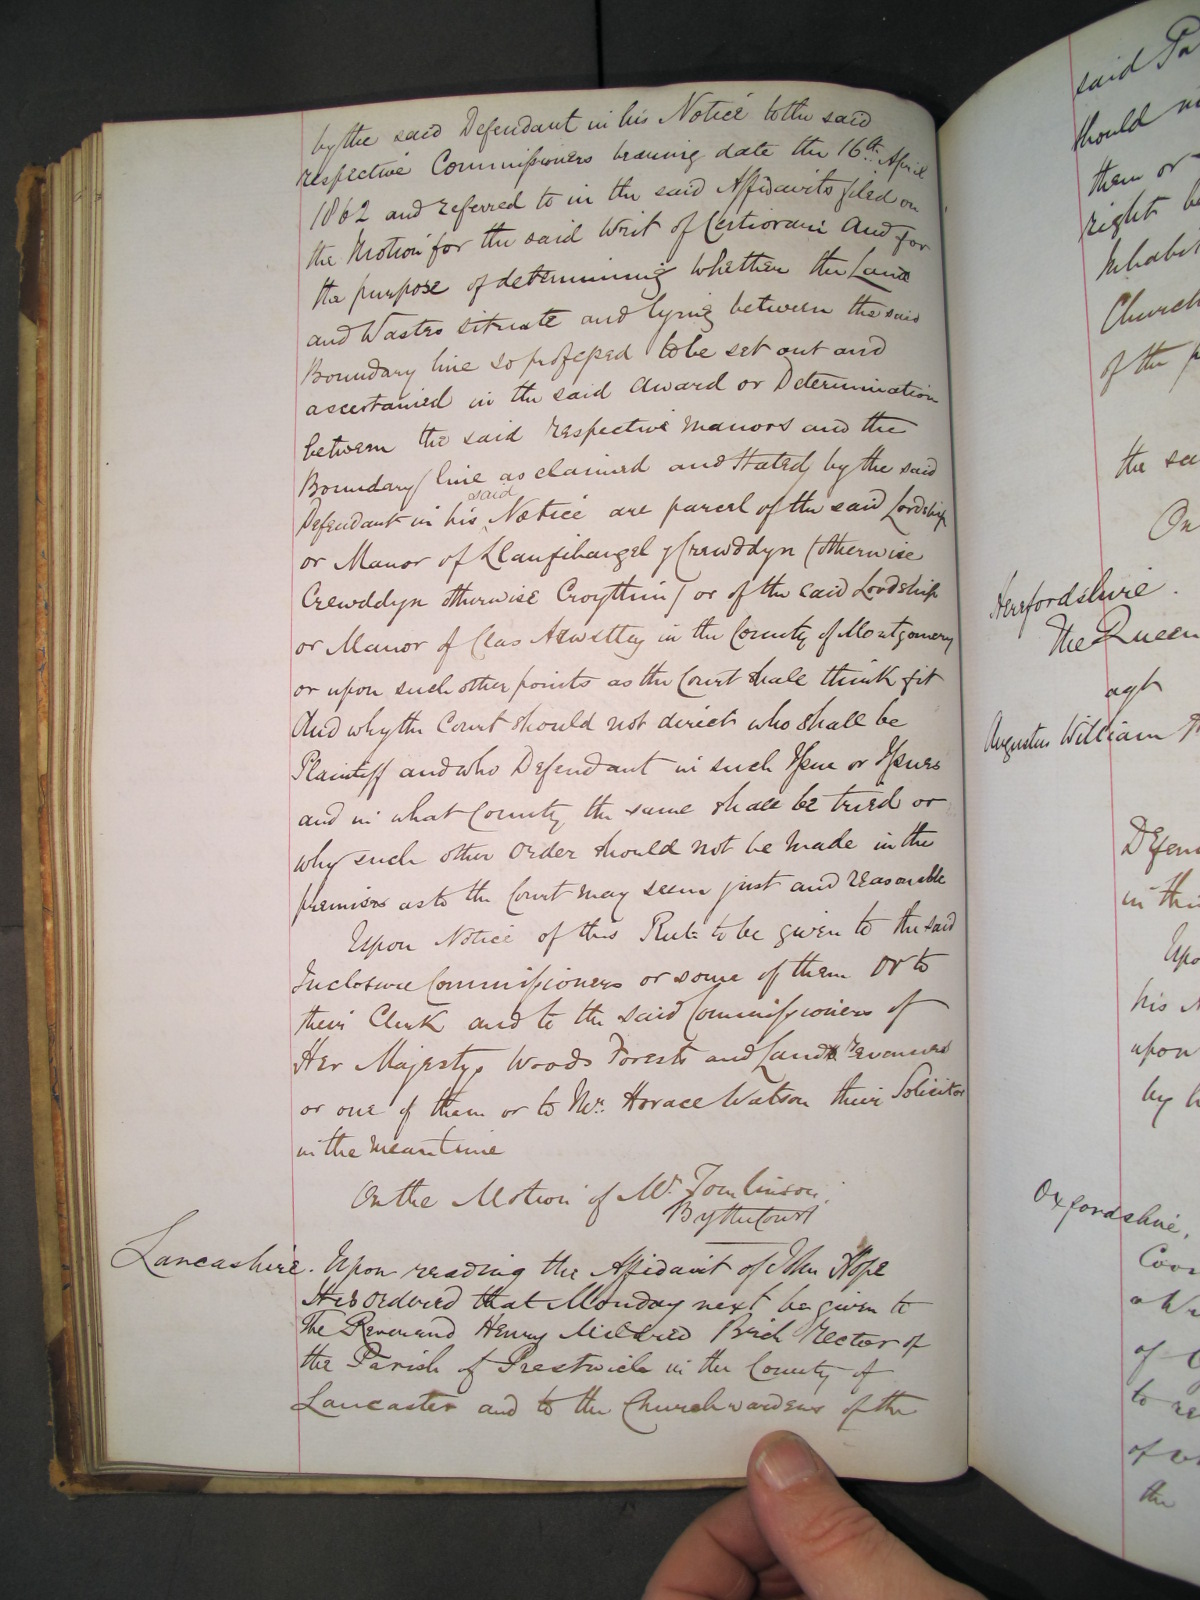 by the said Defendant in his Notice to the said
respective Commissioners bearing date the 16th April
1862 and referred to in the said Affidavits filed on
the Motion for the said Writ of Certiorari And for
the purpose of determining whether the Land
and Wastes situate and lying between the said
Boundary line so professed to be set out and
ascertained in the said Award or Determination
between the said respective Manors and the
Boundary line as claimed and stated by the said
Defendant in his said Notice are parcel of the said Lordship
or Manor of Llanfihangel y Crewddyn (otherwise
Crewddyn otherwise Croythin) or of the said Lordship
or Manor of Clas Arwstley in the County of Montgomery
or upon such other points as the Court shall think fit
And why the Court should not direct who shall be
Plaintiff and who Defendant in such Issue or Issues
and in what County the same shall be tried or
why such other order should not be made in the
premises as to the Court may seem just and reasonable
Upon Notice of this Rule to be given to the said
Inclosure Commissioners or some of them Or to
their Clerk and to the said Commissioners of
Her Majestys Woods Forests and Land revenues
or one of them or to Mr. Horace Watson their Solicitor
in the meantime
On the Motion of Mr. Tomlinson.
By the Court
Lancashire. Upon reading the Affidavit of John Hope
It is ordered that Monday next be given to
The Reverend Henry Mildred Birch Rector of
the Parish of Prestwich in the County of
Lancaster and to the Churchwardens of the
said Pa
should
them or
right be
Inhabit
Church
of the
the sa
On
Herefordshire.
The Queen
agt
Augustus William
Defen
in this
Upo
his
upon
by h
Oxfordshire.
of
to re
of
the